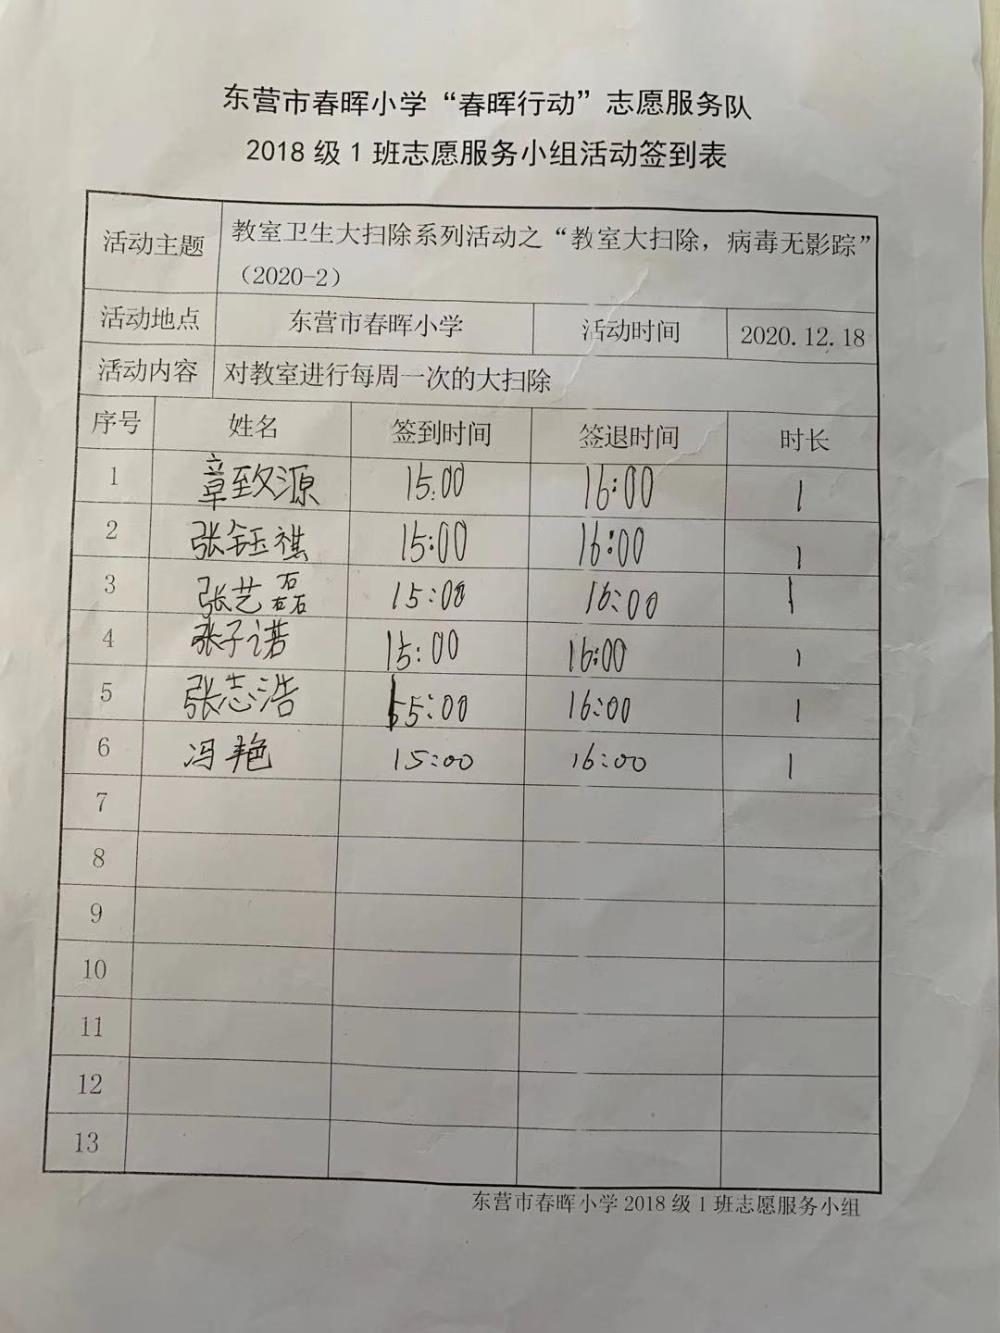 东营市春晖小学“春晖行动”志愿服务队
2018 级 1 班志愿服务小组活动签到表
活动主题 教室卫生大扫除系列活动之“教室大扫除，病毒无影踪”
（2020-2）
活动地点 东营市春晖小学 活动时间 2020.12.18
活动内容 对教室进行每周一次的大扫除
序号 姓名 签到时间 签退时间 时长
1 章致源 15:00 16:00 1
2 张钰祺 15:00 16:00 1
3 张艺磊 15:00 16:00 1
4 张子诺 15:00 16:00 1
5 张志浩 15:00 16:00 1
6 冯艳 15:00 16:00 1
7
8
9
10
11
12
13
东营市春晖小学 2018 级 1 班志愿服务小组